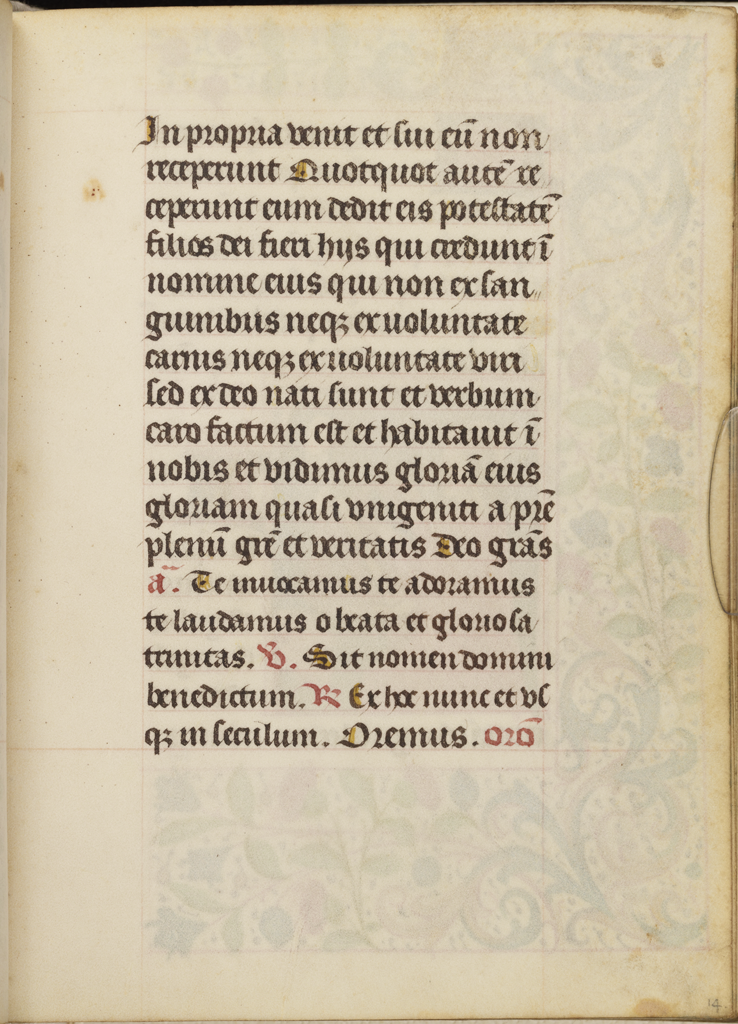 In propria venit et sui eū non
receperunt Quotquot autē re
ceperunt eum dedit eis potestatē
filios dei fieri hijs qui credunt ī
nomine eius qui non ex san
guinibus neqꝫ ex uoluntate
carnis neqꝫ ex uoluntate viri
sed ex deo nati sunt et verbum
caro factum est et habitauit ī
nobis et vidimus gloriā eius
gloriam quasi vnigeniti a pr̄e
plenū gr̄e et veritatis Deo gr̄as
a̅. Te inuocamus te adoramus
te laudamus o beata et gloriosa
trinitas. V. Sit nomen domini
benedictum. R Ex hoc nunc et vs
qꝫ in seculum. Oremus. oro̅
14